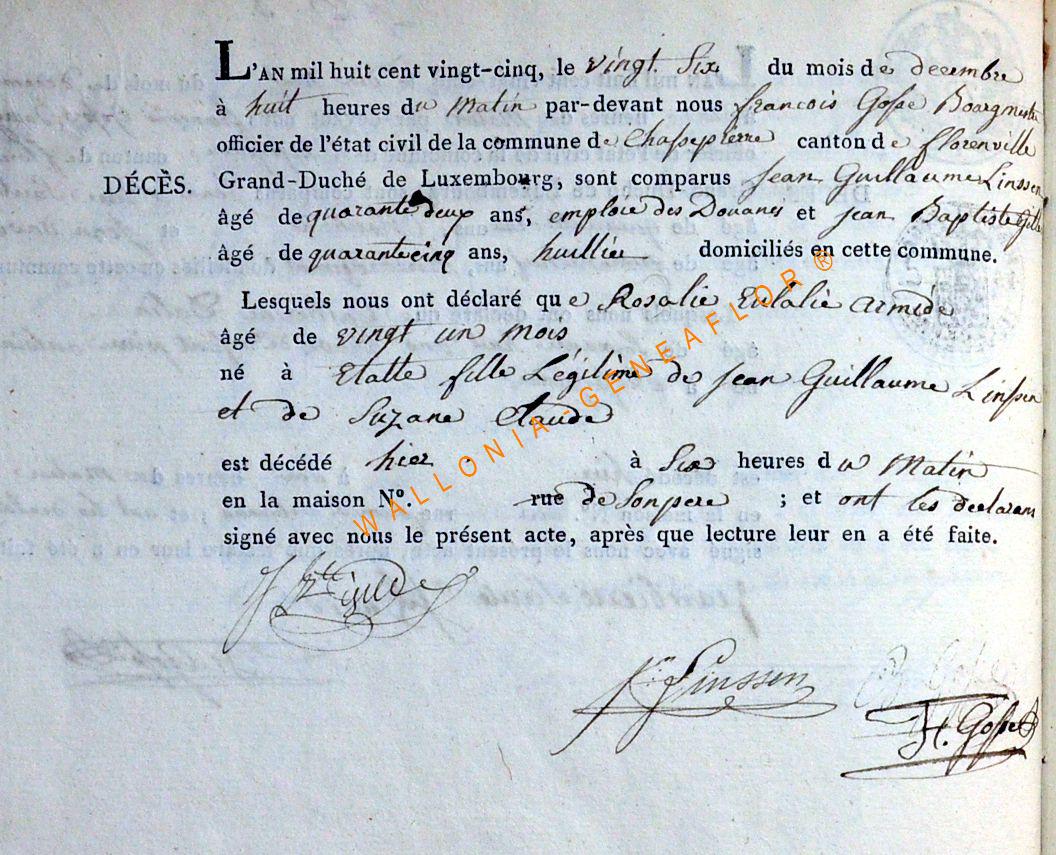 L'AN mil huit cent vingt-cinq, le vingt Six du mois de decembre
à huit heures du Matin par-devant nous francois Gosse Bourgmestre
officier de l'état civil de la commune de Chassepierre canton de florenville
DÉCÈS.
Grand-Duché de Luxembourg, sont comparus Jean Guillaume Linssen
âgé de quarante deux ans, emploie des Douanes et jean Baptiste Gille
âgé de quarante cinq ans, huillier domiciliés en cette commune.
Lesquels nous ont déclaré que Rosalie Eulalie armide
âgé de vingt un mois
né à Etalle fille Légitime de jean Guillaume Linssen
et de Suzane Claude
est décédé hier à Six heures du Matin
en la maison N°. rue de Sonpere ; et ont les declarans
signé avec nous le présent acte, après que lecture leur en a été faite.
J Bte Gille
Linssen
F. Gosse
WALLONIA-GENEAFLOR ®